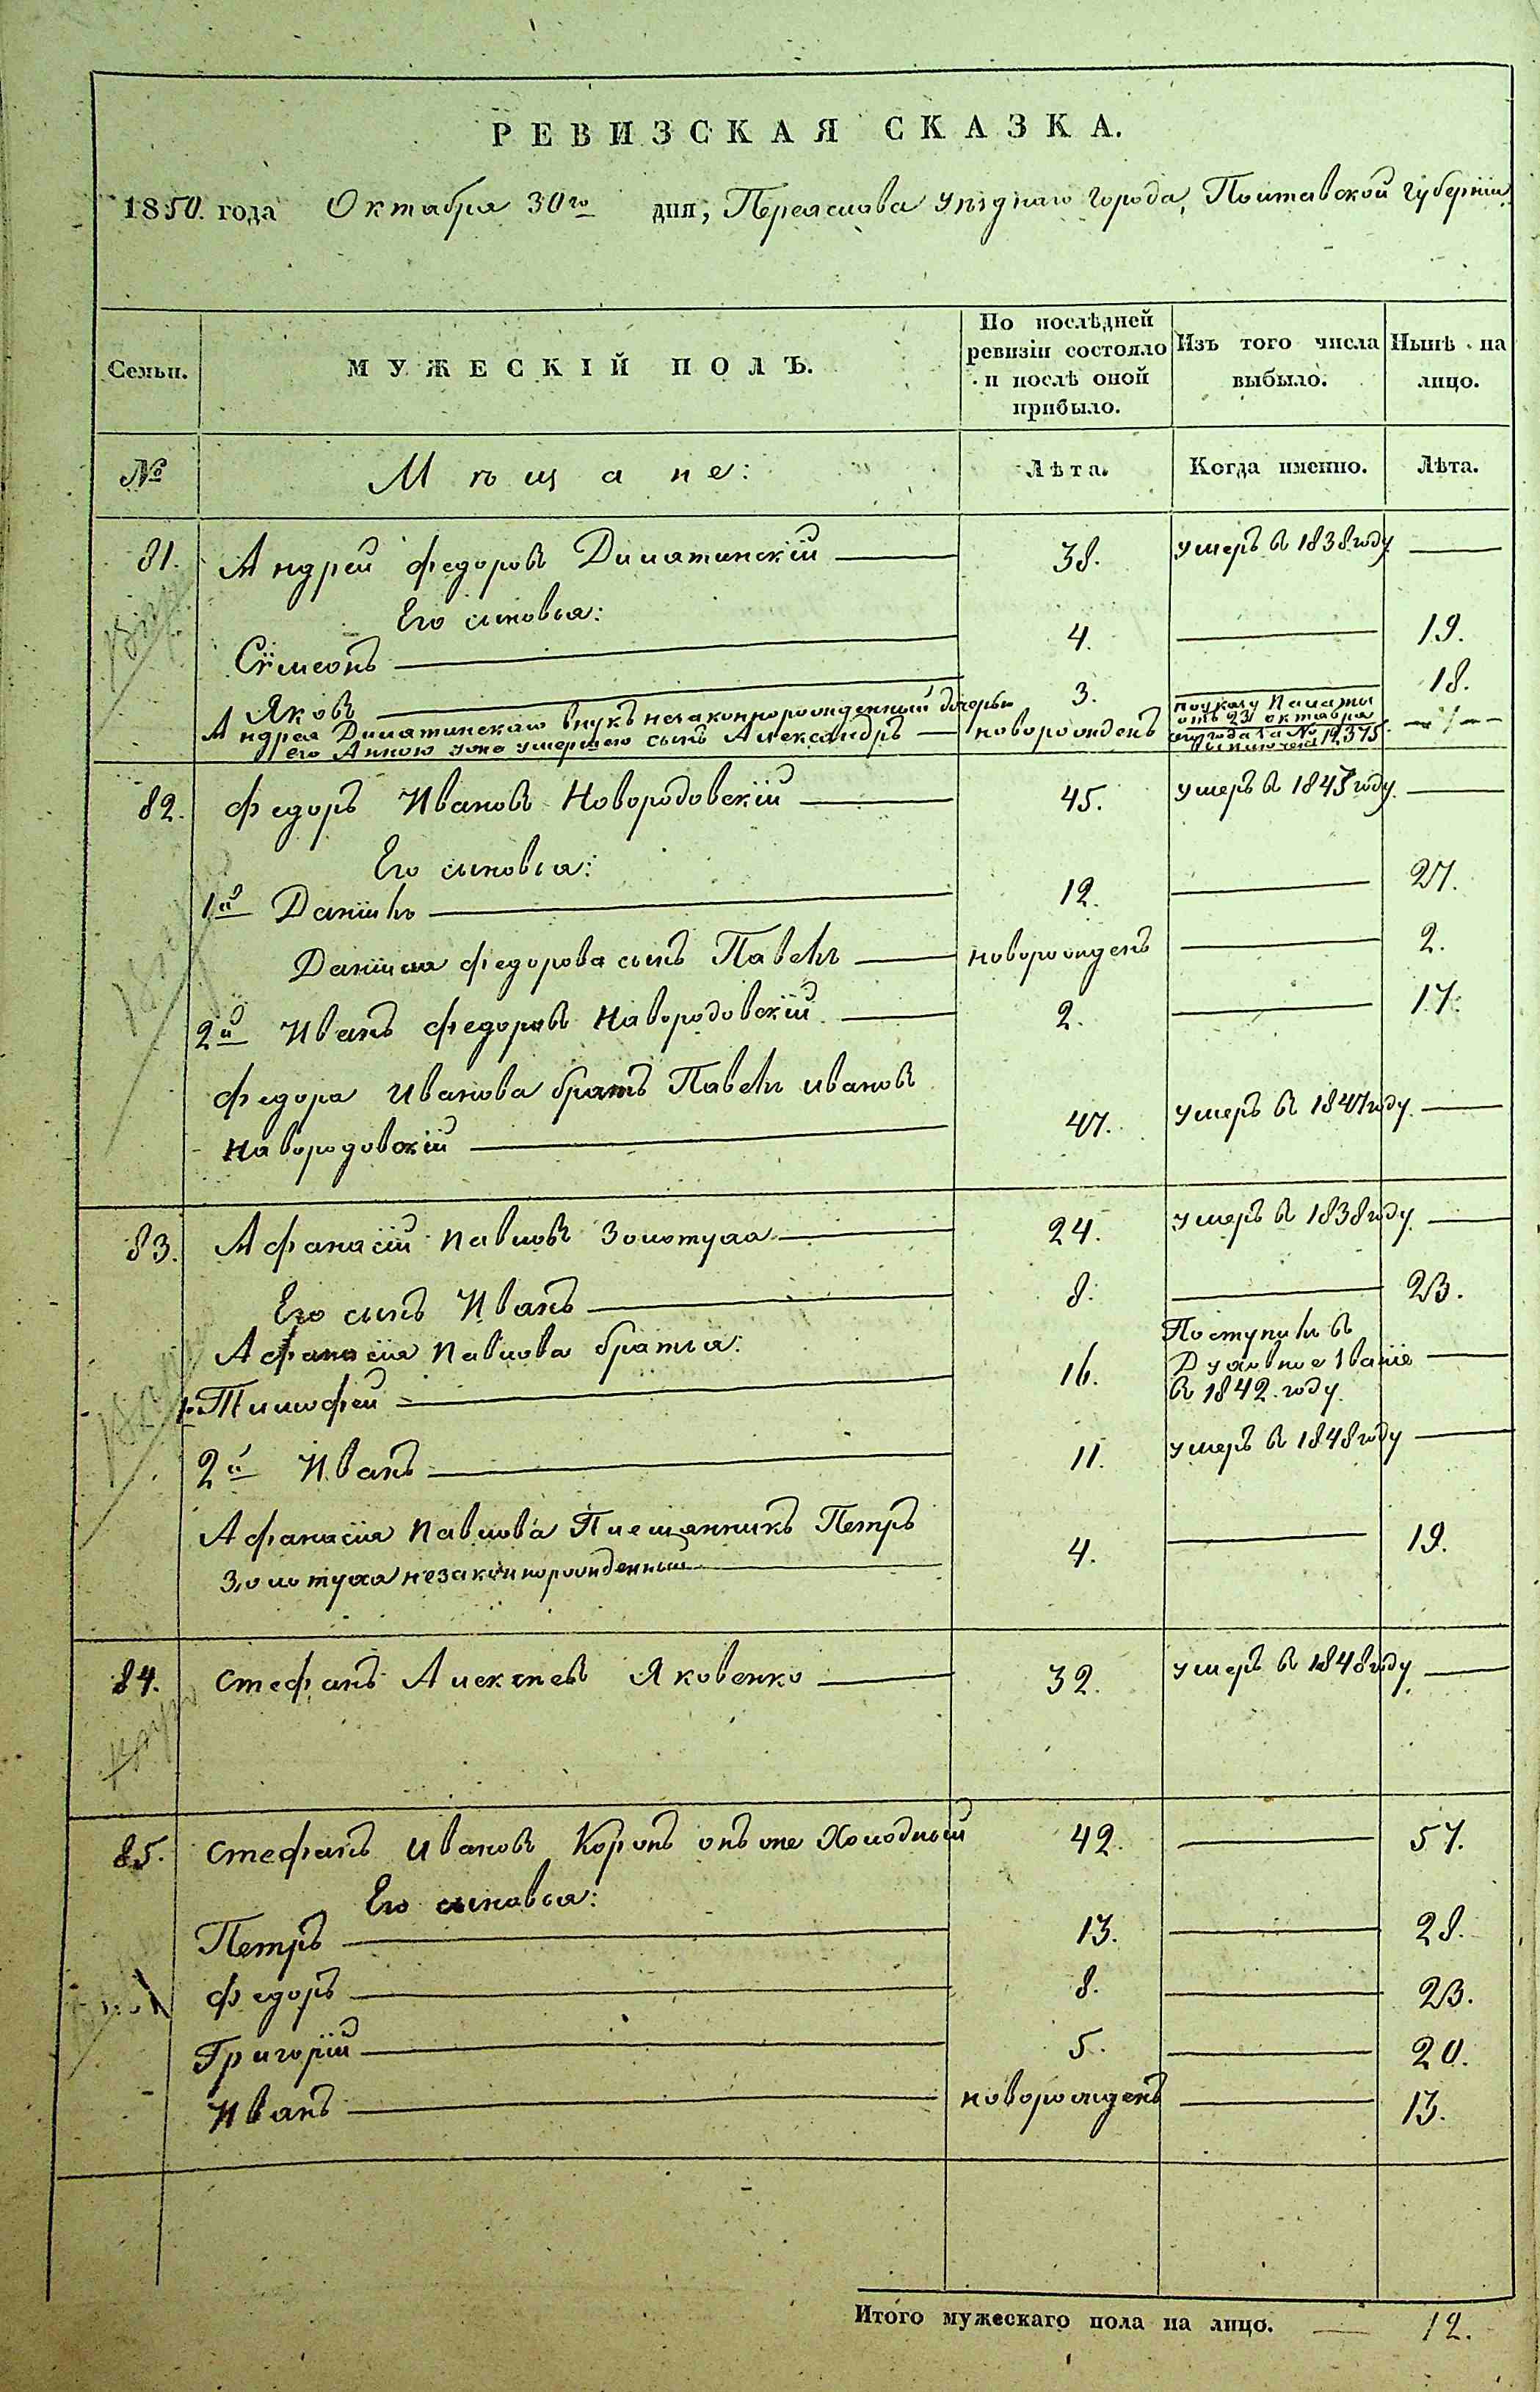 РЕВИЗСКАЯ СКАЗКА.
1850. года Октября 30го дня, Переяслова уѣзднаго города, Полтавской губерніи
Семьи. МУЖЕСКІЙ ПОЛЪ. По послѣдней ревизіи состояло и послѣ оной прибыло. Изъ того числа выбыло. Нынѣ на лицо.
№ Мѣщане: Лѣта. Когда именно. Лѣта.
81. Андрей Федоровъ 38. умеръ въ 1838 году
Его сыновья:
Сѵмеонъ 4. 19.
Яковъ 3. 18.
Андрея внукъ незаконнорожденный дочерью новорожденъ по указу Палаты
его Анною уже умершею сынъ Александръ отъ 23 октября
сего года за № 12375
82. Федоръ Ивановъ Новородовскій 45. умеръ въ 1847 году
Его сыновья:
1й Даніилъ 12. 27.
Даніила Федорова сынъ Павелъ новорожденъ 2.
2й Иванъ Федоровъ Новородовскій 2. 17.
Федора Иванова братъ Павелъ Ивановъ
Новородовскій 47. умеръ въ 1847 году
83. Афанасій Павловъ Золотуха 24. умеръ въ 1838 году
Его сынъ Иванъ 8. 23.
Афанасія Павлова братья:
1. Тимофей 16. Поступилъ въ
Духовное званіе
въ 1842. году
2й Иванъ 11. умеръ въ 1848 году
Афанасія Павлова Племянникъ Петръ
Золотуха незаконнорожденный 4. 19.
84. Стефанъ Алексѣевъ Яковенко 32. умеръ въ 1848 году
85. Стефанъ Ивановъ Коропъ онъ же Холодный 42. 57.
Его сыновья:
Петръ 13. 28.
Федоръ 8. 23.
Григорій 5. 20.
Иванъ новорожденъ 13.
Итого мужескаго пола на лицо. 12.